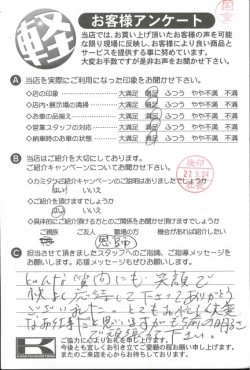 軽
お客様アンケート
当店では、お買い上げ頂いたお客様の声を可能
な限り現場に反映し、お客様により良い商品と
サービスを提供する事に努めています。
大変お手数ですが是非お声をお聞かせ下さい。
A 当店を実際にご利用になった印象をお聞かせ下さい。
◇店の印象 大満足 満足 ふつう やや不満 不満
◇店内・展示場の清掃 大満足 満足 ふつう やや不満 不満
◇お車の品揃え 大満足 満足 ふつう やや不満 不満
◇営業スタッフの対応 大満足 満足 ふつう やや不満 不満
◇納車時のお車の状態 大満足 満足 ふつう やや不満 不満
B 当店はご紹介を大切にしております。
ご紹介キャンペーンについてお聞かせ下さい。
◇カミタケご紹介キャンペーンのご説明はありましたでしょうか
はい いいえ
◇ご紹介を頂けますでしょうか
はい いいえ
◇具体的にご紹介頂ける方とのご関係をお聞かせ下さい
ご親戚 ご友人 職場の方 機会があれば紹介したい
恩師
C 担当させて頂きましたスタッフへのご指摘、ご指導メッセージを
お願いします。応援メッセージもぜひお願いします。
どんな質問にも笑顔で
快よく応待して下さってありがとう
ございました。とてもお忙しく大変
なお仕事だと思いますが
で頑張って下さい。
K
ご協力に心よりお礼を申し上げます。
今後とも宜しくお引き立てご愛顧の程お願い申し上げます。
またのご来店を心からお待ちしております。